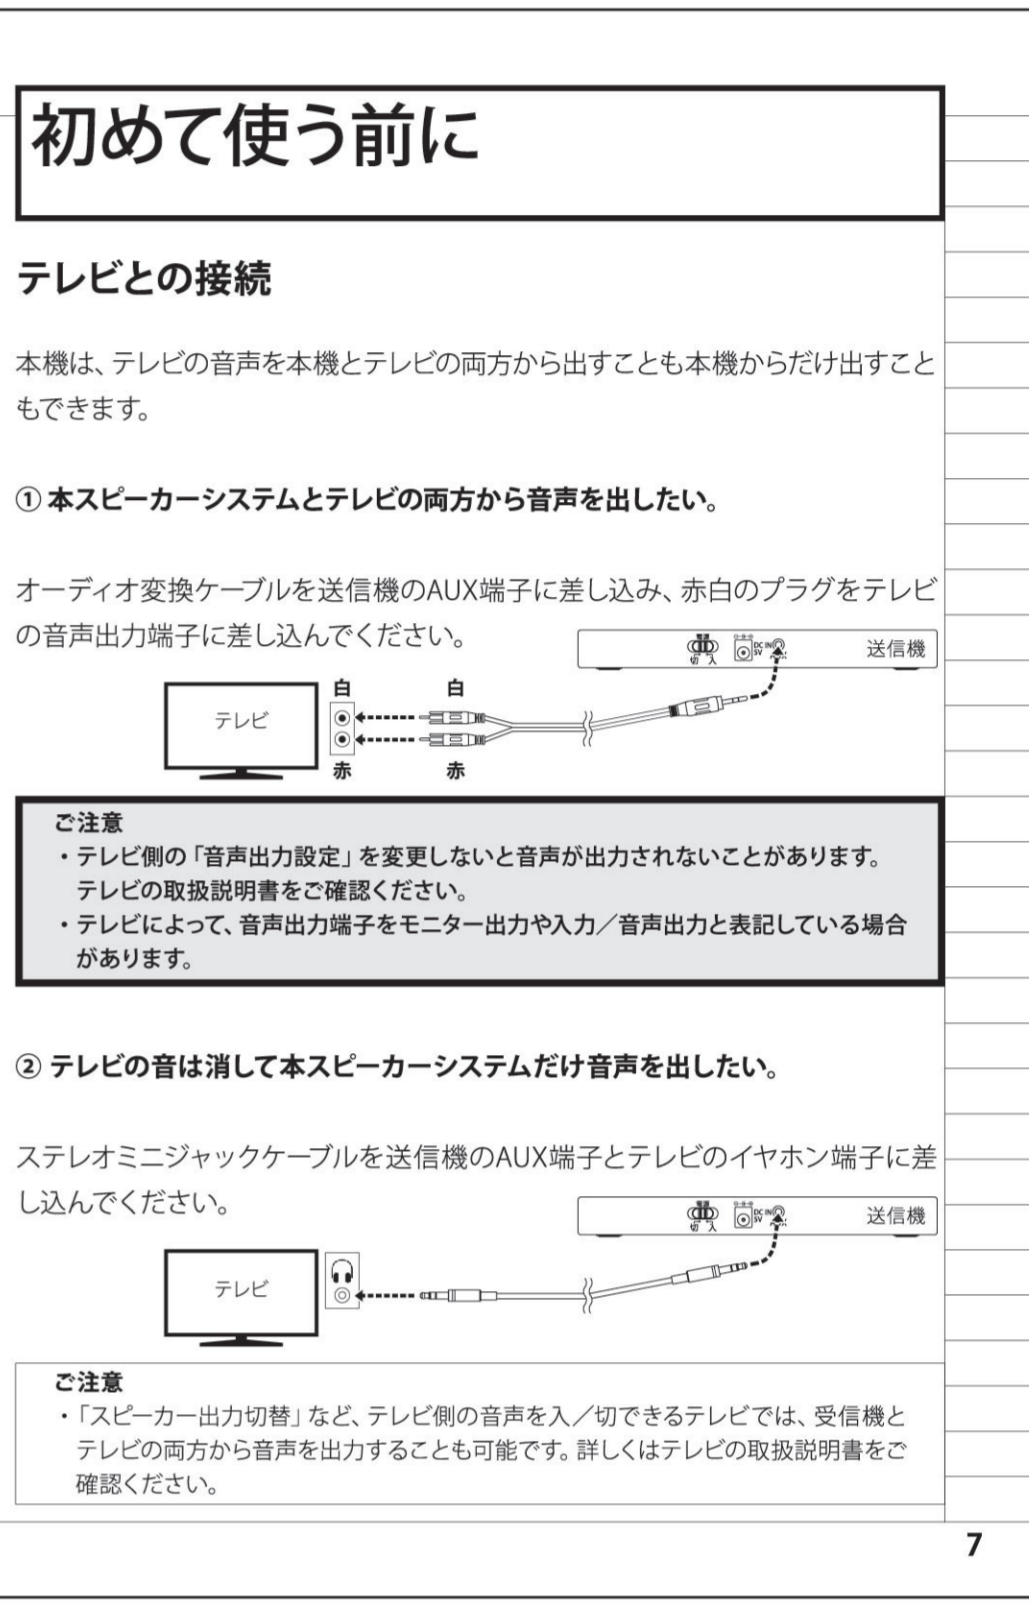 初めて使う前に
テレビとの接続
本機は、テレビの音声を本機とテレビの両方から出すことも本機からだけ出すこと
もできます。
① 本スピーカーシステムとテレビの両方から音声を出したい。
オーディオ変換ケーブルを送信機のAUX端子に差し込み、赤白のプラグをテレビ
の音声出力端子に差し込んでください。
電源
切 入
DC IN
5V
送信機
白 白
テレビ
赤 赤
ご注意
・テレビ側の「音声出力設定」を変更しないと音声が出力されないことがあります。
テレビの取扱説明書をご確認ください。
・テレビによって、音声出力端子をモニター出力や入力／音声出力と表記している場合
があります。
② テレビの音は消して本スピーカーシステムだけ音声を出したい。
ステレオミニジャックケーブルを送信機のAUX端子とテレビのイヤホン端子に差
し込んでください。
電源
切 入
DC IN
5V
送信機
テレビ
ご注意
・「スピーカー出力切替」など、テレビ側の音声を入／切できるテレビでは、受信機と
テレビの両方から音声を出力することも可能です。詳しくはテレビの取扱説明書をご
確認ください。
7